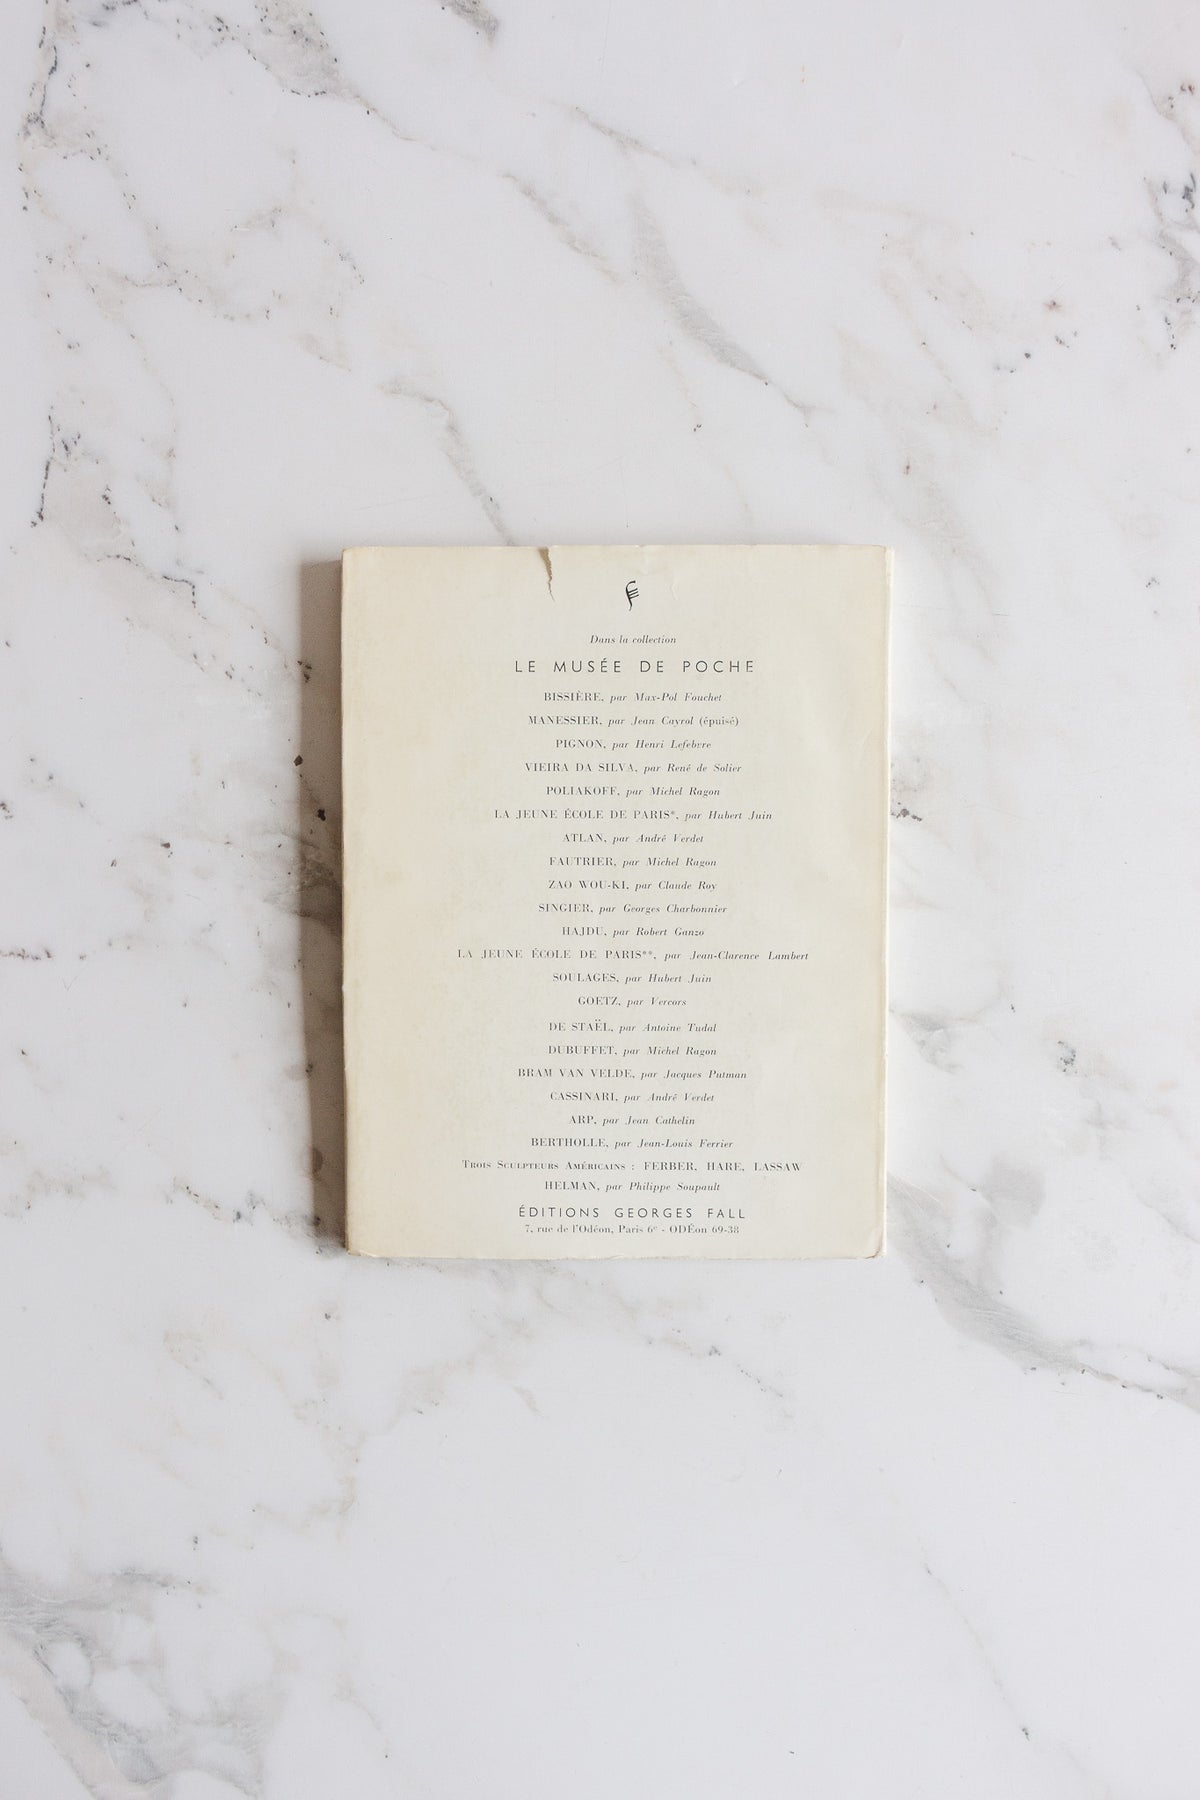 Dans la collection
LE MUSÉE DE POCHE
BISSIÈRE, par Max-Pol Fouchet
MANESSIER, par Jean Cayrol (épuisé)
PIGNON, par Henri Lefebvre
VIEIRA DA SILVA, par René de Solier
POLIAKOFF, par Michel Ragon
LA JEUNE ÉCOLE DE PARIS*, par Hubert Juin
ATLAN, par André Verdet
FAUTRIER, par Michel Ragon
ZAO WOU-KI, par Claude Roy
SINGIER, par Georges Charbonnier
HAJDU, par Robert Ganzo
LA JEUNE ÉCOLE DE PARIS**, par Jean-Clarence Lambert
SOULAGES, par Hubert Juin
GOETZ, par Vercors
DE STAËL, par Antoine Tudal
DUBUFFET, par Michel Ragon
BRAM VAN VELDE, par Jacques Putman
CASSINARI, par André Verdet
ARP, par Jean Cathelin
BERTHOLLE, par Jean-Louis Ferrier
TROIS SCULPTEURS AMÉRICAINS : FERBER, HARE, LASSAW
HELMAN, par Philippe Soupault
ÉDITIONS GEORGES FALL
7, rue de l'Odéon, Paris 6e - ODÉon 69-38